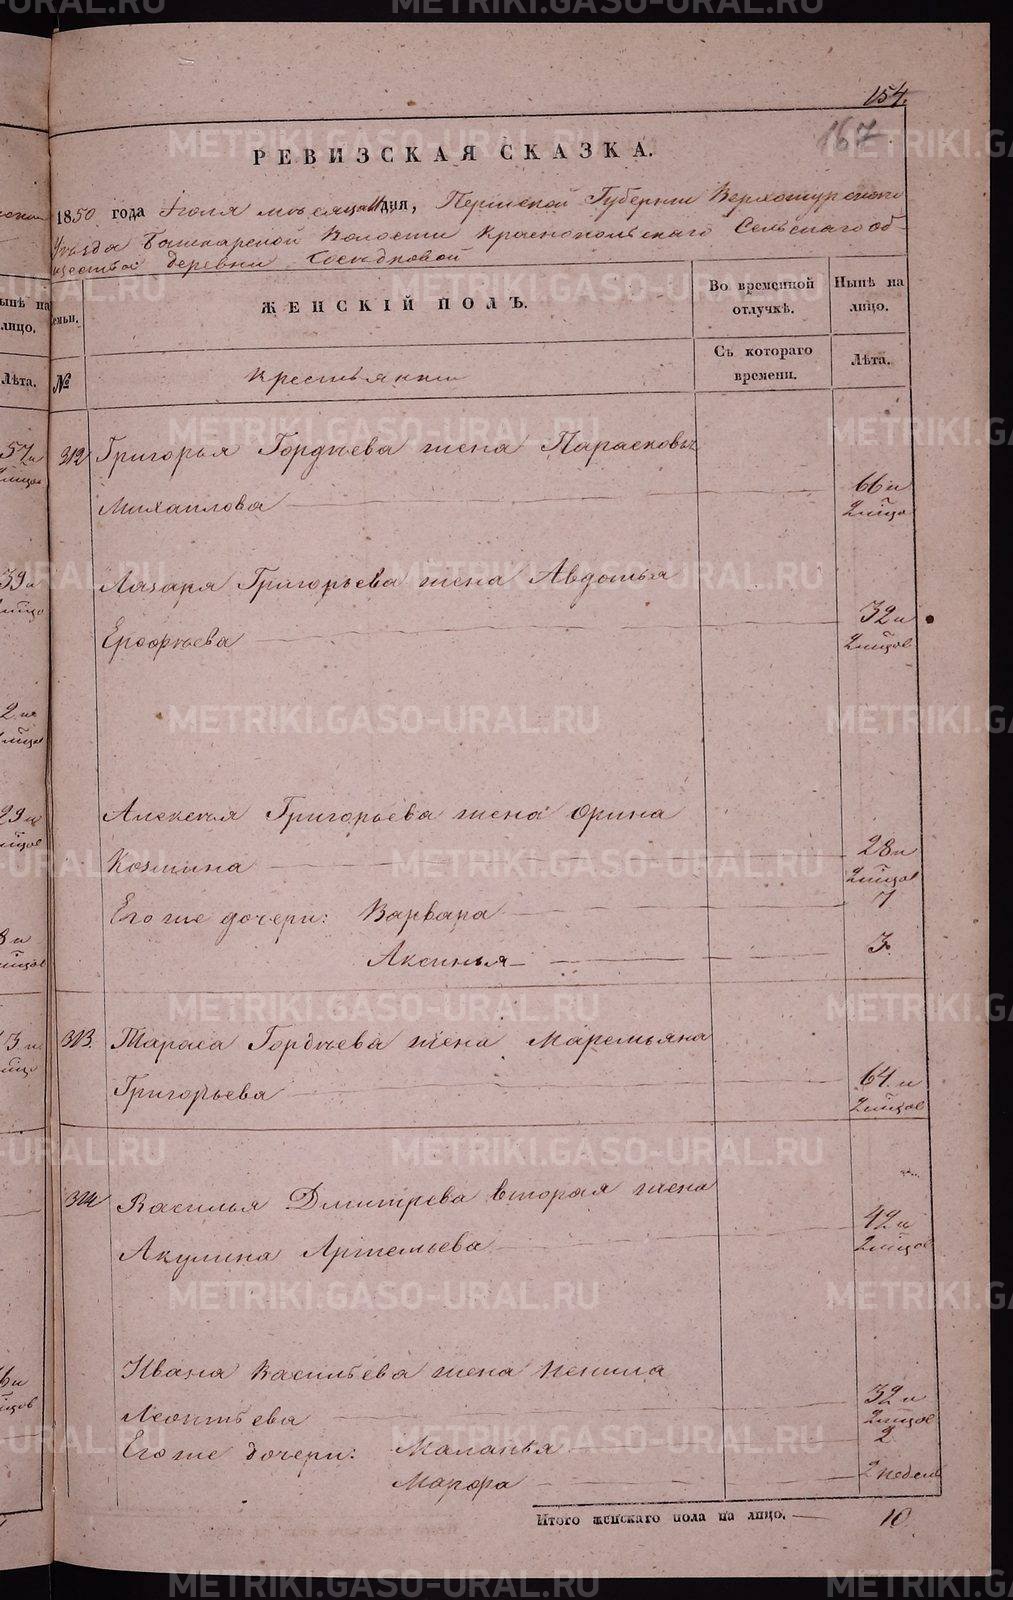 154.
167
РЕВИЗСКАЯ СКАЗКА.
1850 года Іюля мѣсяца дня, Пермской Губерніи Верхотурскаго
Уѣзда Башкарской Волости Краснопольскаго Сельскаго об-
щества деревни
ЖЕНСКІЙ ПОЛЪ.
Во временной отлучкѣ.
Нынѣ на лицо.
семьи.
№
Крестьянки
Съ котораго времени.
Лѣта.
312 Григорья Гордѣева жена Парасковья
Михаилова 66 и
Лазаря Григорьева жена Авдотья
Ерофѣева 32 и
Алексѣя Григорьева жена Орина
Козмина 28 и
Его же дочери: Варвара 7
Аксинья 3.
313. Тараса Гордѣева жена Маремьяна
Григорьева 64 и
314 Василья Дмитрева вторая жена
Акулина Артемьева 42 и
Ивана Васильева жена Ненила
Леонтьева 32 и
Его же дочери: Маланья 2
Марфа 2 недели
Итого женскаго пола на лицо. 10.
METRIKI.GASO-URAL.RU